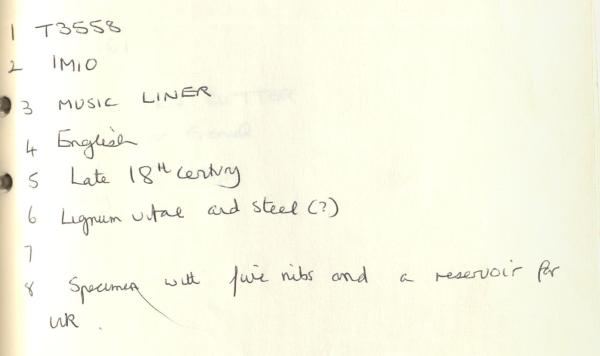 1 T3558
2 IMIO
3 MUSIC LINER
4 English
5 Late 18th century
6 Lignum vitae and steel (?)
7
8 Specimen with five nibs and a reservoir for
ink.